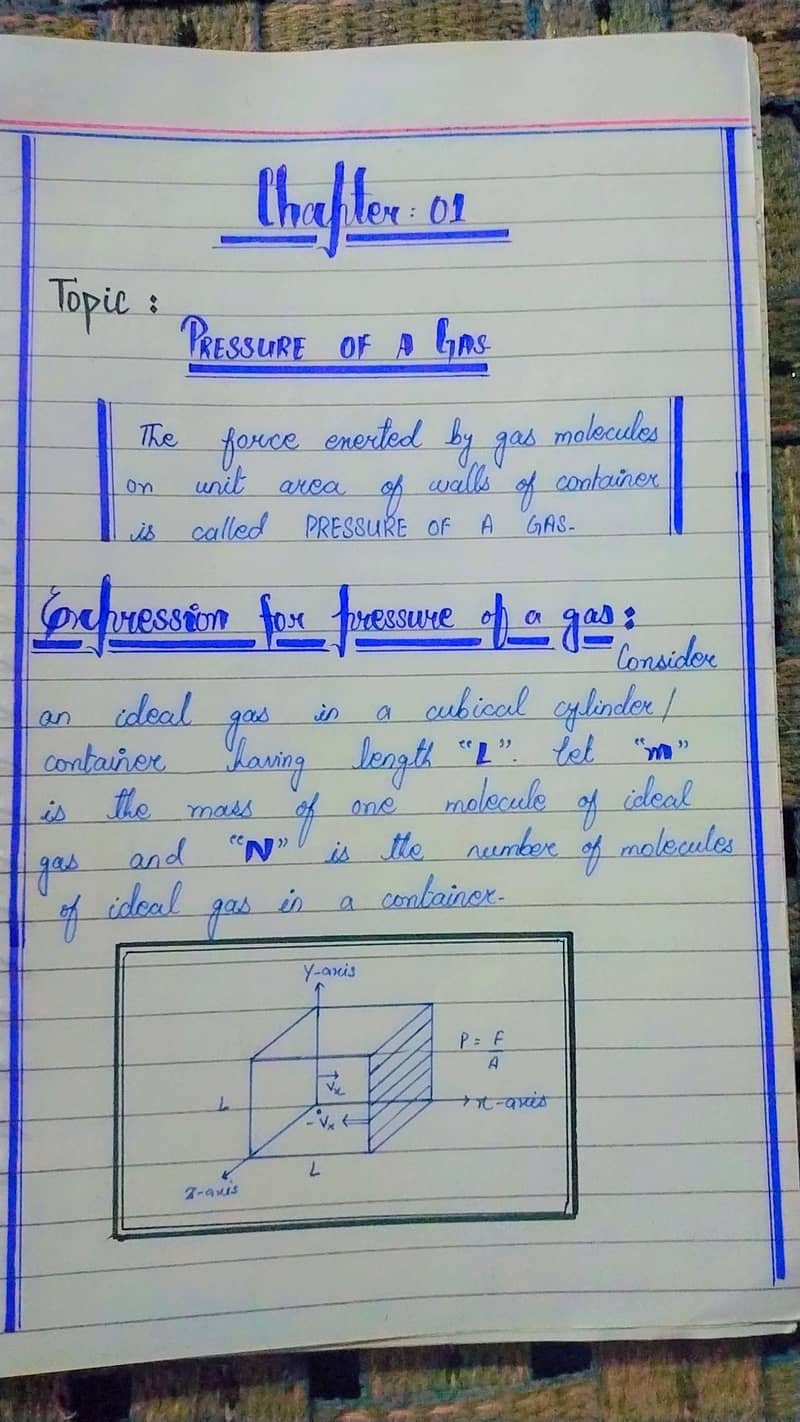 Chapter: 01
Topic :
PRESSURE OF A GAS
The force exerted by gas molecules
on unit area of walls of container
is called PRESSURE OF A GAS.
Expression for pressure of a gas:
Consider
an ideal gas in a cubical cylinder/
container having length "L". let "m"
is the mass of one molecule of ideal
gas and "N" is the number of molecules
of ideal gas in a container.
Y-axis
P = F
A
Vx
L
x-axis
-Vx
L
Z-axis